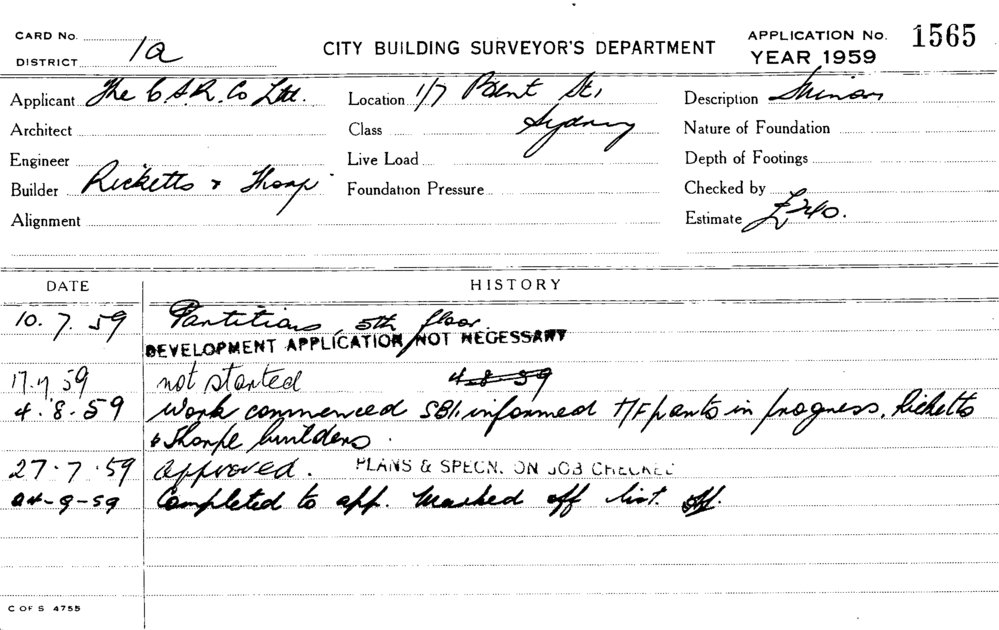 CARD No.
DISTRICT 1a
CITY BUILDING SURVEYOR'S DEPARTMENT
APPLICATION No. 1565
YEAR 1959
Applicant The C.S.R. Co Ltd.
Location 1/7 Bent St,
Description Minor
Architect
Class Sydney
Nature of Foundation
Engineer
Live Load
Depth of Footings
Builder Ricketts & Thorp
Foundation Pressure
Checked by
Alignment
Estimate £240.
DATE HISTORY
10.7.59 Partitions, 5th floor.
DEVELOPMENT APPLICATION NOT NECESSARY
17.7.59 not started 4.8.59
4.8.59 Work commenced SBI. informed T/F parts in progress. Ricketts
& Thorpe builders.
27.7.59 approved. PLANS & SPECN. ON JOB CHECKED
24-9-59 Completed to app. Marked off list.
C OF S 4755